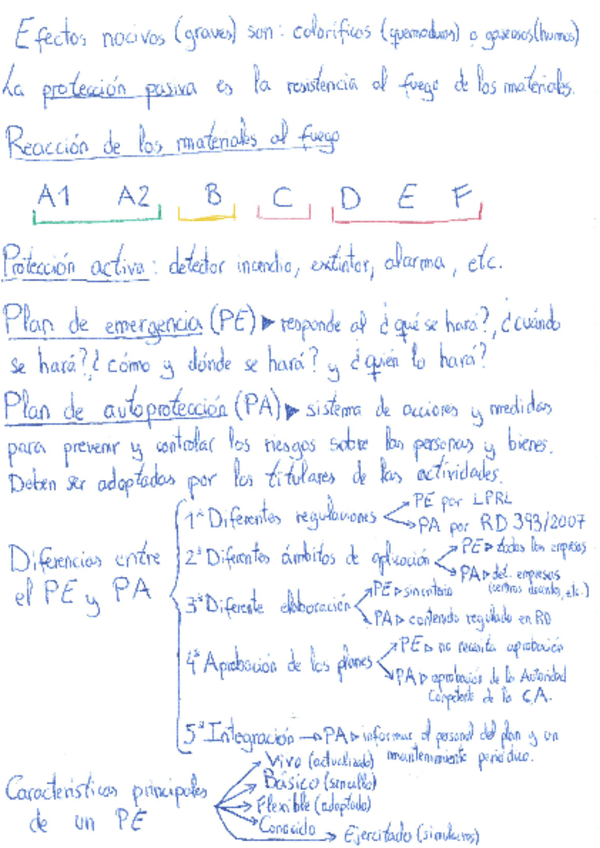 Efectos nocivos (graves) son: caloríficos (quemaduras) o gaseosos (humos)
La protección pasiva es la resistencia al fuego de los materiales.
Reacción de los materiales al fuego
A1 A2 B C D E F
Protección activa: detector incendio, extintor, alarma, etc.
Plan de emergencia (PE) ▶ responde al ¿qué se hará?, ¿cuándo
se hará? ¿cómo y dónde se hará? y ¿quién lo hará?
Plan de autoprotección (PA) ▶ sistema de acciones y medidas
para prevenir y controlar los riesgos sobre las personas y bienes.
Deben ser adoptadas por los titulares de las actividades.
Diferencias entre
el PE y PA
1ª Diferentes regulaciones
→ PE por LPRL
→ PA por RD 393/2007
2ª Diferentes ámbitos de aplicación
→ PE ▷ todas las empresas
→ PA ▷ det. empresas
(centros docentes, etc.)
3ª Diferente elaboración
→ PE ▷ sin criterio
→ PA ▷ contenido regulado en RD
4ª Aprobación de los planes
→ PE ▷ no necesita aprobación
→ PA ▷ aprobación de la Autoridad
Competente de la C.A.
5ª Integración → PA ▷ informar al personal del plan y un
mantenimiento periódico.
Características principales
de un PE
→ Vivo (actualizado)
→ Básico (sencillo)
→ Flexible (adaptado)
→ Conocido
→ Ejercitado (simulacros)